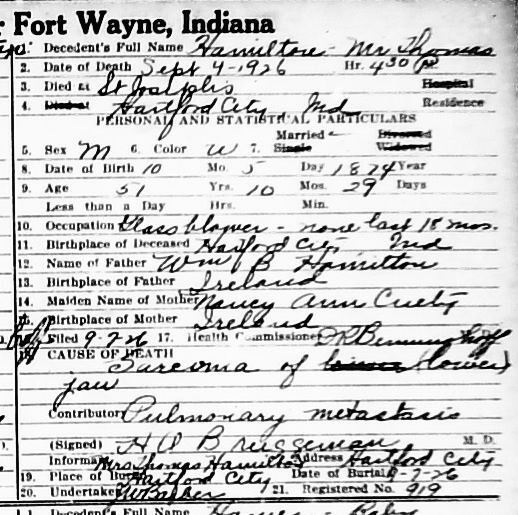 Fort Wayne, Indiana
1. Decedent's Full Name Hamilton Mr Thomas
2. Date of Death Sept 4-1926 Hr. 4 30 P.
3. Died at St Josephs Hospital
4. Died at Hartford City Ind Residence
PERSONAL AND STATISTICAL PARTICULARS
Married Divorced
5. Sex M 6. Color W 7. Single Widowed
8. Date of Birth 10 Mo. 5 Day 1874 Year
9. Age 51 Yrs. 10 Mos. 29 Days
Less than a Day Hrs. Min.
10. Occupation Glass blower - none last 18 mos.
11. Birthplace of Deceased Hartford City Ind
12. Name of Father Wm B Hamilton
13. Birthplace of Father Ireland
14. Maiden Name of Mother Nancy Ann
15. Birthplace of Mother Ireland
Filed 9-7-26 17. Health Commissioner M. D.
18. CAUSE OF DEATH
Sarcoma of (lower)
jaw
Contributory Pulmonary metastasis
(Signed) H W Bruggeman M. D.
Informant Mrs Thomas Hamilton Address Hartford City
19. Place of Burial Hartford City Date of Burial 9-7-26
20. Undertaker 21. Registered No. 919
Decedent's Full Name